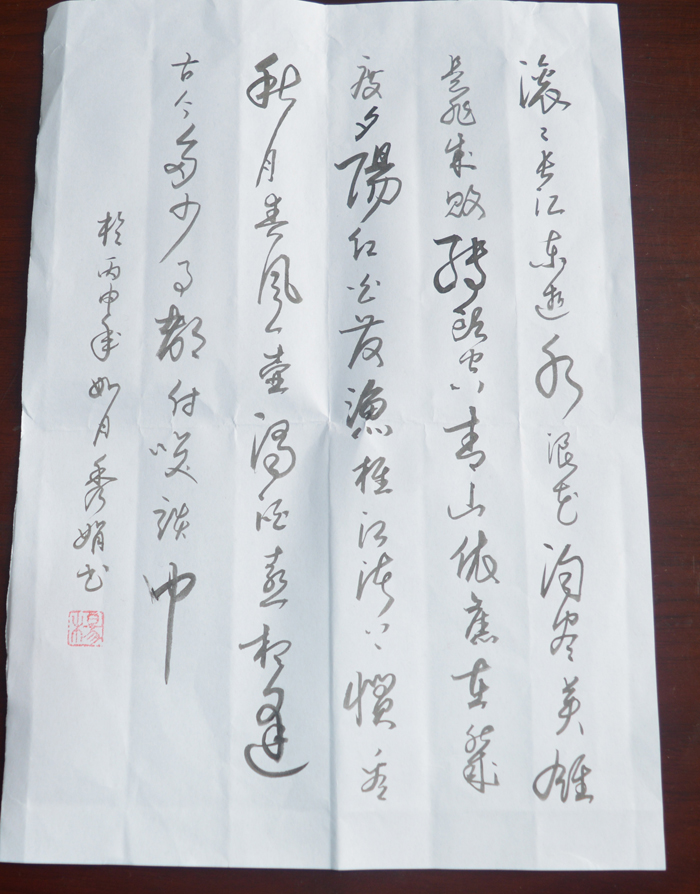 滚〻长江东逝水浪花淘尽英雄
是非成败转头空青山依旧在几
度夕陽红白发漁樵江渚上慣看
秋月春风一壶濁酒喜相逢
古今多少事都付笑谈中
於丙申年如月秀娟书